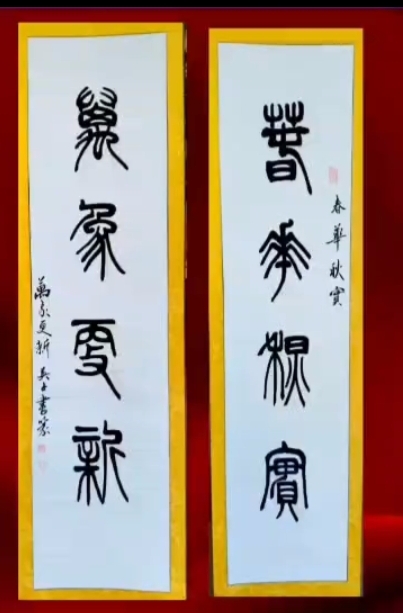 春華秋實
春華秋實
萬象更新
萬象更新 書篆